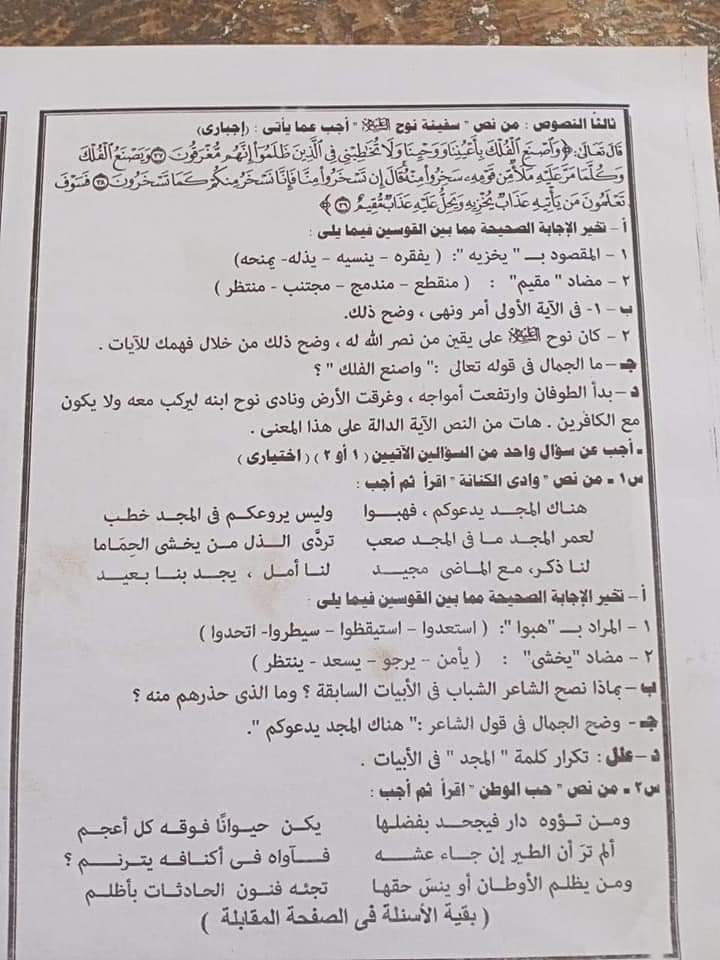 ثالثاً النصوص : من نص " سفينة نوح ﷺ " أجب عما يأتى : (إجبارى)
قَالَ تَعَالَى: ﴿ وَاصْنَعِ الْفُلْكَ بِأَعْيُنِنَا وَوَحْيِنَا وَلَا تُخَاطِبْنِي فِي الَّذِينَ ظَلَمُوا إِنَّهُم مُّغْرَقُونَ ٣٧ وَيَصْنَعُ الْفُلْكَ
وَكُلَّمَا مَرَّ عَلَيْهِ مَلَأٌ مِّن قَوْمِهِ سَخِرُوا مِنْهُ قَالَ إِن تَسْخَرُوا مِنَّا فَإِنَّا نَسْخَرُ مِنكُمْ كَمَا تَسْخَرُونَ ٣٨ فَسَوْفَ
تَعْلَمُونَ مَن يَأْتِيهِ عَذَابٌ يُخْزِيهِ وَيَحِلُّ عَلَيْهِ عَذَابٌ مُّقِيمٌ ٣٩ ﴾
أ – تخير الإجابة الصحيحة مما بين القوسين فيما يلى :
١ – المقصود بـ " يخزيه ": ( يفقره – ينسيه – يذله- يمنحه)
٢ – مضاد " مقيم" : ( منقطع – مندمج – مجتنب - منتظر )
ب – ١- فى الآية الأولى أمر ونهى ، وضح ذلك.
٢ – كان نوح على يقين من نصر الله له ، وضح ذلك من خلال فهمك للآيات .
جـ – ما الجمال فى قوله تعالى :" واصنع الفلك " ؟
د – بدأ الطوفان وارتفعت أمواجه ، وغرقت الأرض ونادى نوح ابنه ليركب معه ولا يكون
مع الكافرين . هات من النص الآية الدالة على هذا المعنى .
- أجب عن سؤال واحد من السؤالين الآتيين ( ١ أو ٢ ) ( اختيارى )
س١ - من نص " وادى الكنانة " اقرأ ثم أجب :
هناك المجد يدعوكم ، فهبـوا وليس يروعكـم فى المجـد خطـب
لعمر المجـد مـا فى المجـد صعب تردَّى الـذل مـن يخشى الحِمَاما
لنا ذكر، مـع المـاضى مجيـد لنـا أمـل ، يجـد بنـا بـعيـد
أ – تخير الإجابة الصحيحة مما بين القوسين فيما يلى :
١ – المراد بـ "هبوا ": ( استعدوا – استيقظوا – سيطروا- اتحدوا )
٢ – مضاد "يخشى" : ( يأمن – يرجو – يسعد - ينتظر )
ب – بماذا نصح الشاعر الشباب فى الأبيات السابقة ؟ وما الذى حذرهم منه ؟
جـ - وضح الجمال فى قول الشاعر :" هناك المجد يدعوكم ".
د – علل : تكرار كلمة " المجد " فى الأبيات .
س٢ - من نص " حب الوطن " اقرأ ثم أجب :
ومـن تـؤوه دار فيجحـد بفضلـها يكـن حيـوانًا فوقـه كـل أعجـم
ألم ترَ أن الطيـر إن جـاء عشـه فـآواه فـى أكنافـه يترنـم ؟
ومـن يظلـم الأوطـان أو ينسَ حقهـا تجئـه فنـون الحادثـات بأظلـم
( بقية الأسئلة فى الصفحة المقابلة )